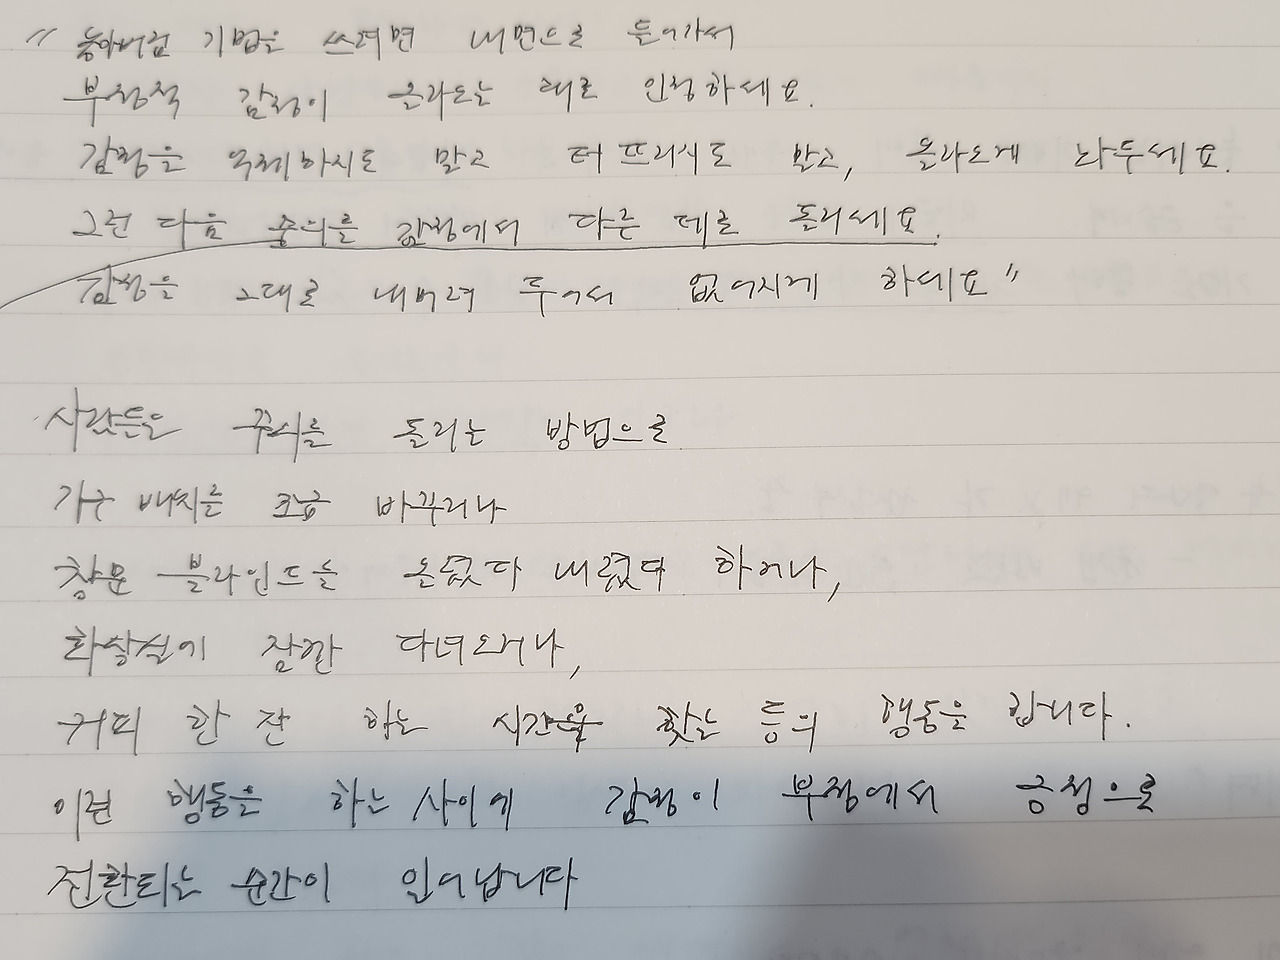 " 놓아버림 기법을 쓰려면 내면으로 들어가서
부정적 감정이 올라오는 대로 인정하세요.
감정을 억제하지도 말고 터뜨리지도 말고, 올라오게 놔두세요.
그런 다음 주의를 감정에서 다른 데로 돌리세요.
감정을 그대로 내버려 두어서 없어지게 하세요"
사람들은 주의를 돌리는 방법으로
가구 배치를 조금 바꾸거나
창문 블라인드를 올렸다 내렸다 하거나,
화장실에 잠깐 다녀오거나,
커피 한 잔 하는 시간을 찾는 등의 행동을 합니다.
이런 행동을 하는 사이에 감정이 부정에서 긍정으로
전환되는 순간이 일어납니다